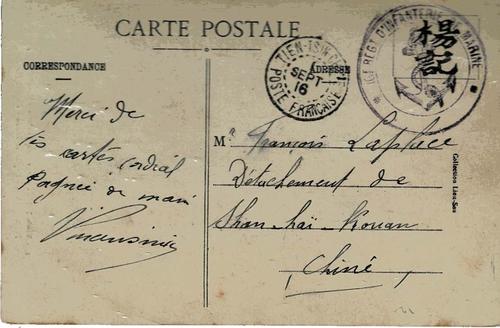 CARTE POSTALE
CORRESPONDANCE
ADRESSE
TIEN-TSIN
SEPT
16
POSTE FRANÇAISE
16e REGT D'INFANTERIE MARINE
楊記
Merci de
tes cartes cordial
Pognée de main
M. François Laplace
Détachement de
Shan-haï-Kouan
Chine
Collection Lieu-Ses